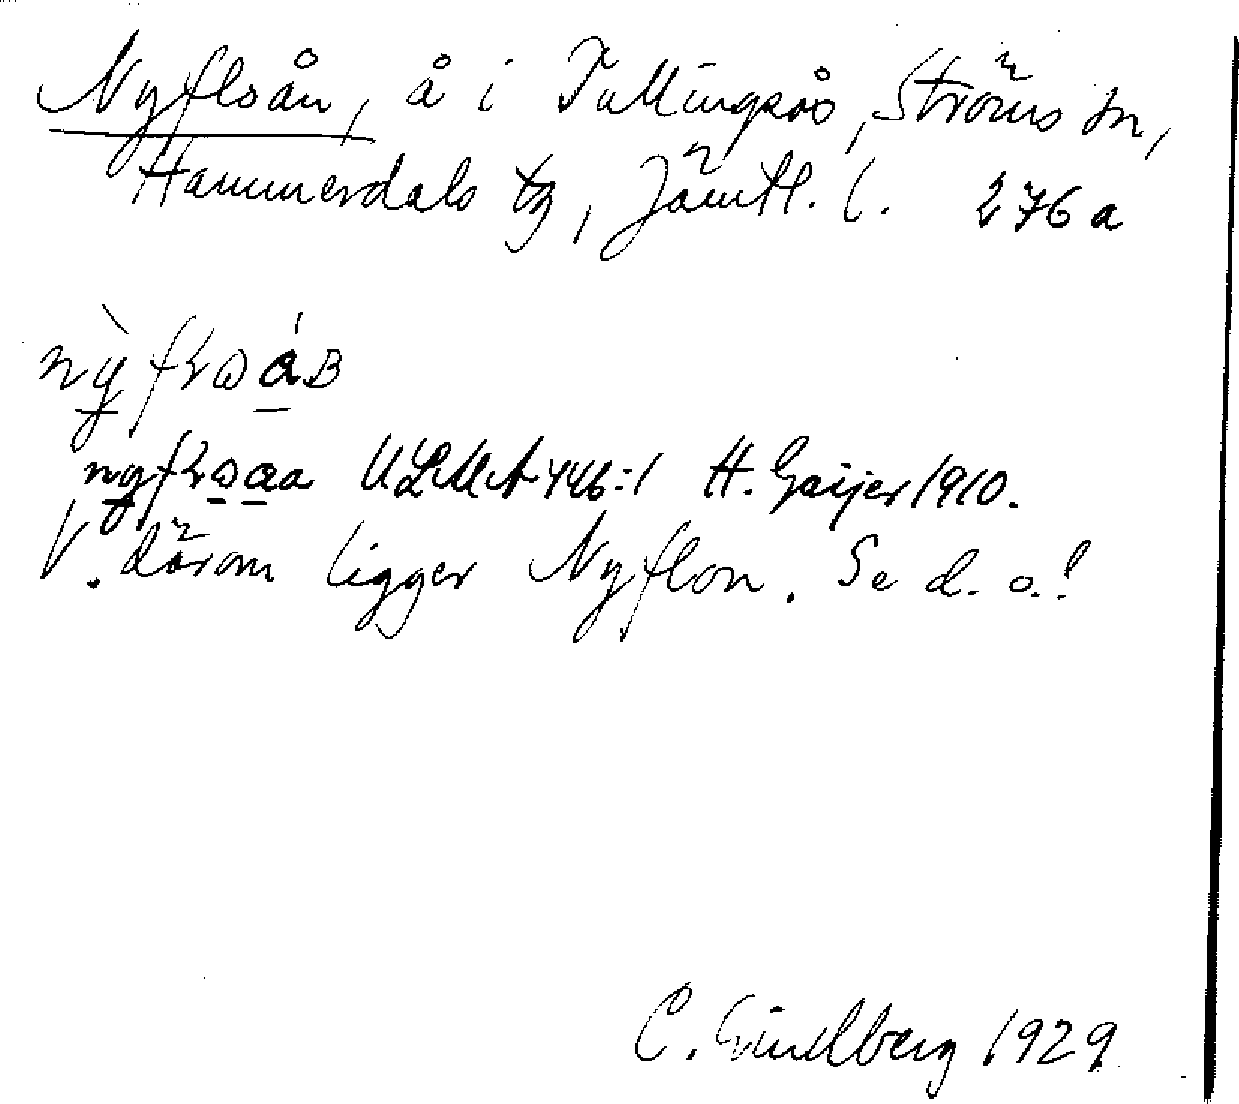 Nyfloån, å i Tullingsås, Ströms sn,
Hammerdals tg, Jämtl. l. 276 a
ULMA 446:1 H. Geijer 1910.
V. därom ligger Nyflon. Se d. o.!
C. Lindberg 1929